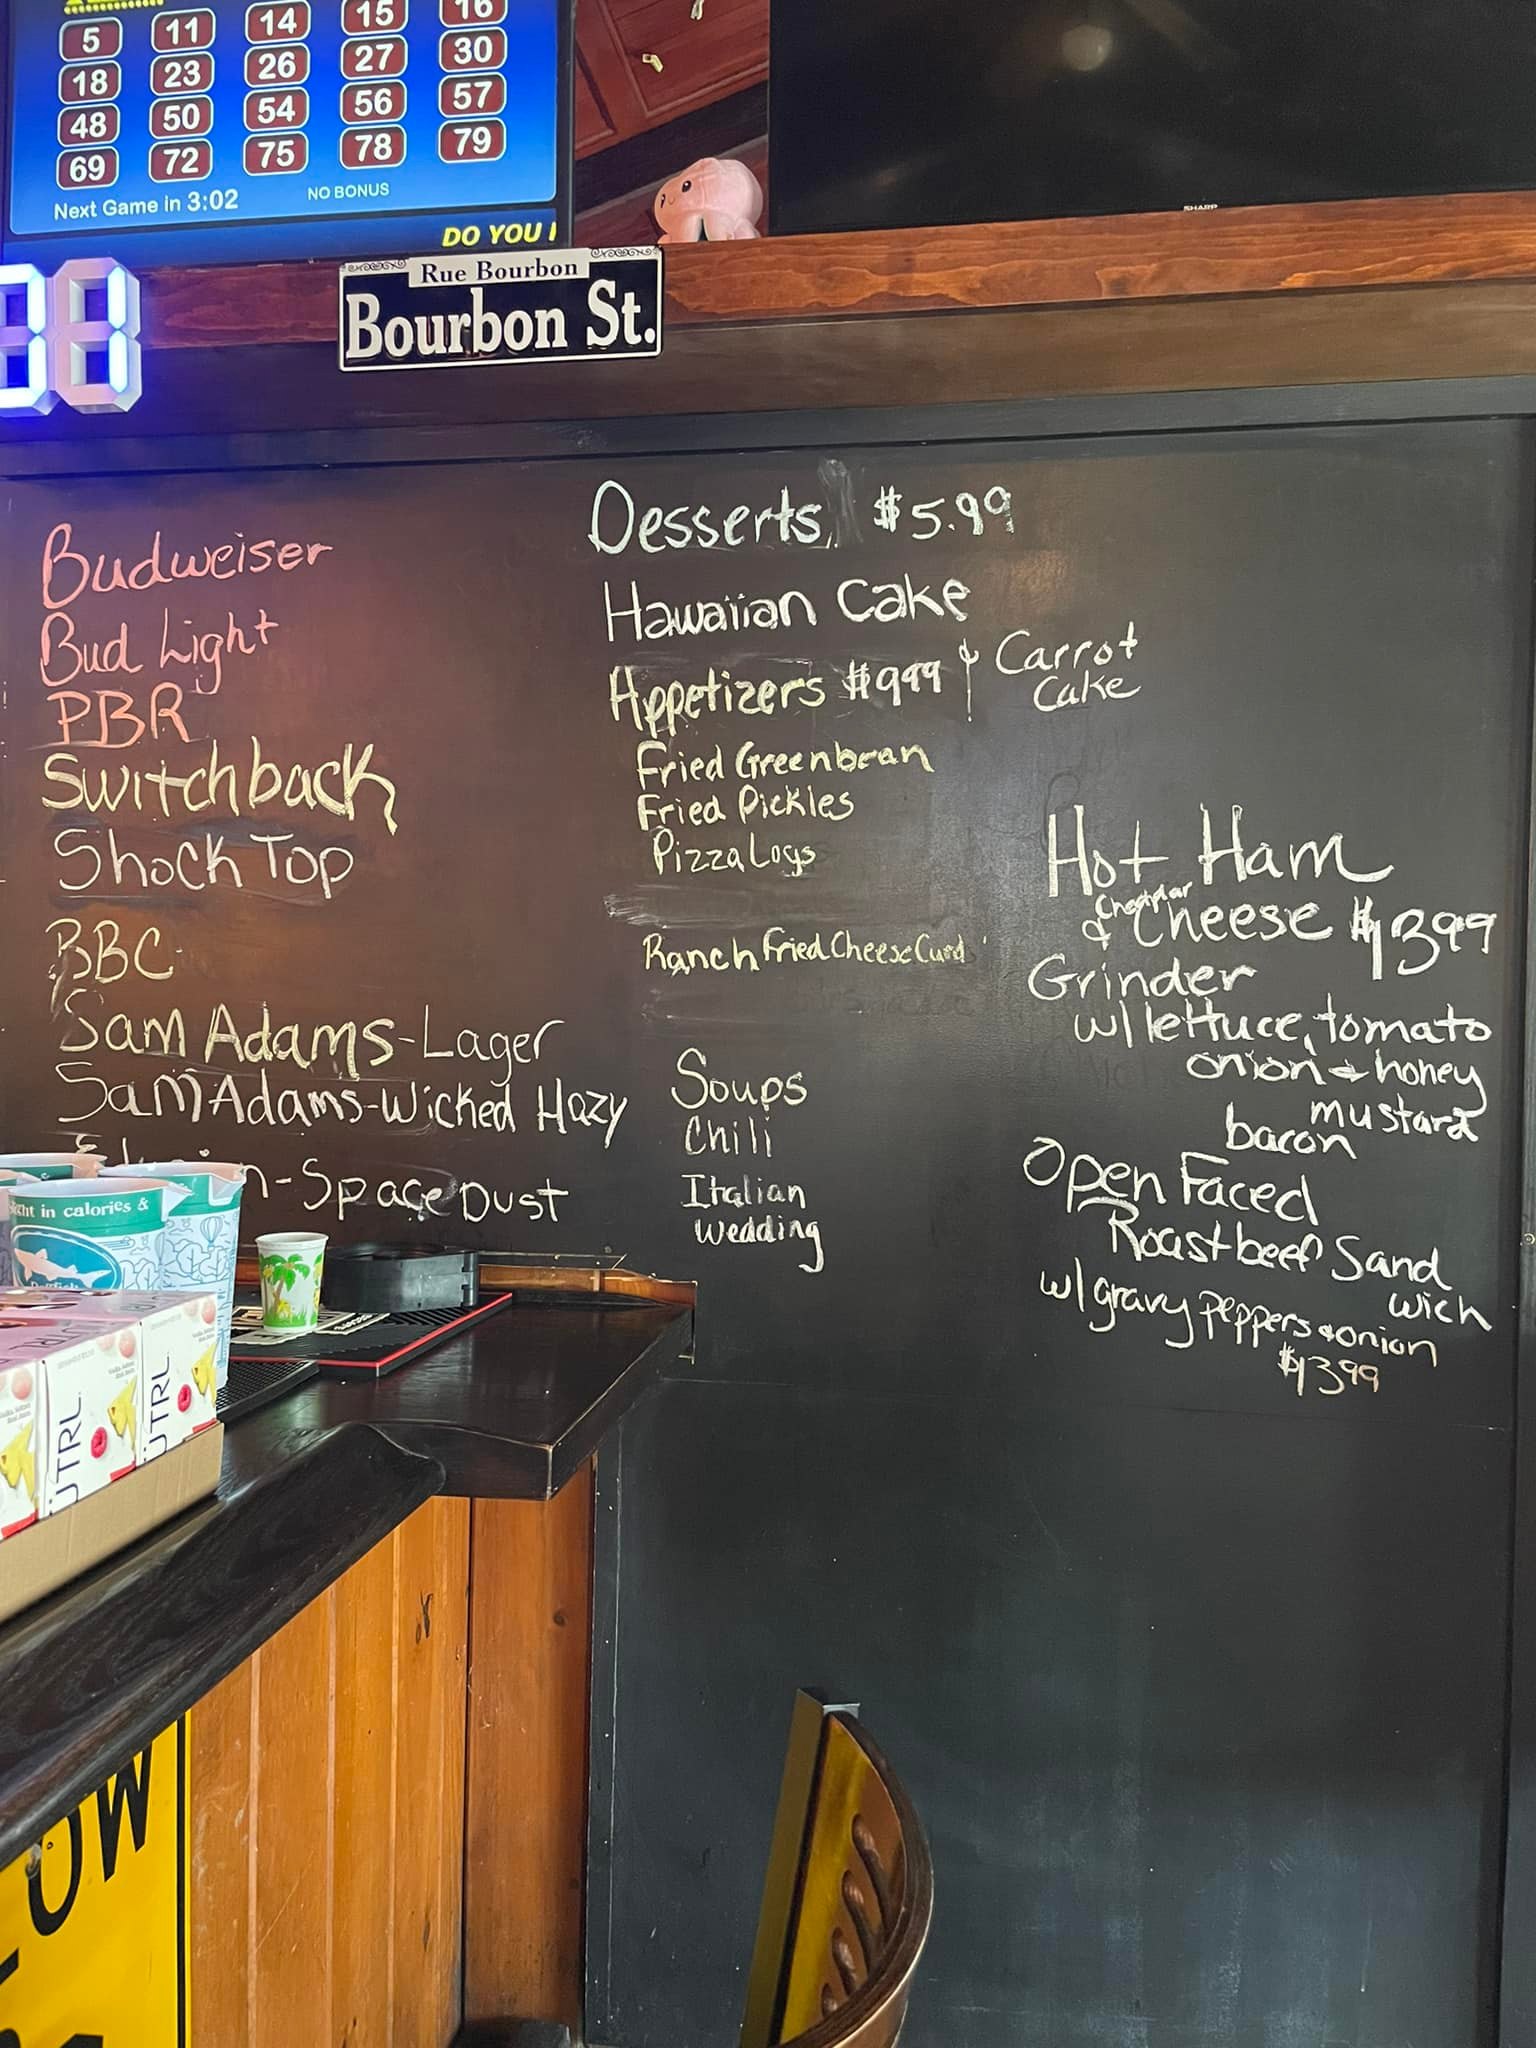 5 11 14 15 16
18 23 26 27 30
48 50 54 56 57
69 72 75 78 79
Next Game in 3:02 NO BONUS
DO YOU
SHARP
Rue Bourbon
Bourbon St.
Budweiser
Bud Light
PBR
Switchback
Shock Top
BBC
Sam Adams-Lager
Sam Adams-Wicked Hazy
-Space Dust
Desserts $5.99
Hawaiian Cake
& Carrot
Cake
Appetizers $9.99
Fried Greenbean
Fried Pickles
Pizza Logs
Ranch Fried Cheese Curd
Soups
Chili
Italian
Wedding
Hot Ham
& Cheddar Cheese $13.99
Grinder
w/ lettuce, tomato
onion & honey
mustard
bacon
Open Faced
Roastbeef Sand
wich
w/ gravy peppers & onion
$13.99
in calories &
ÜTRL
ÜTRL
OW